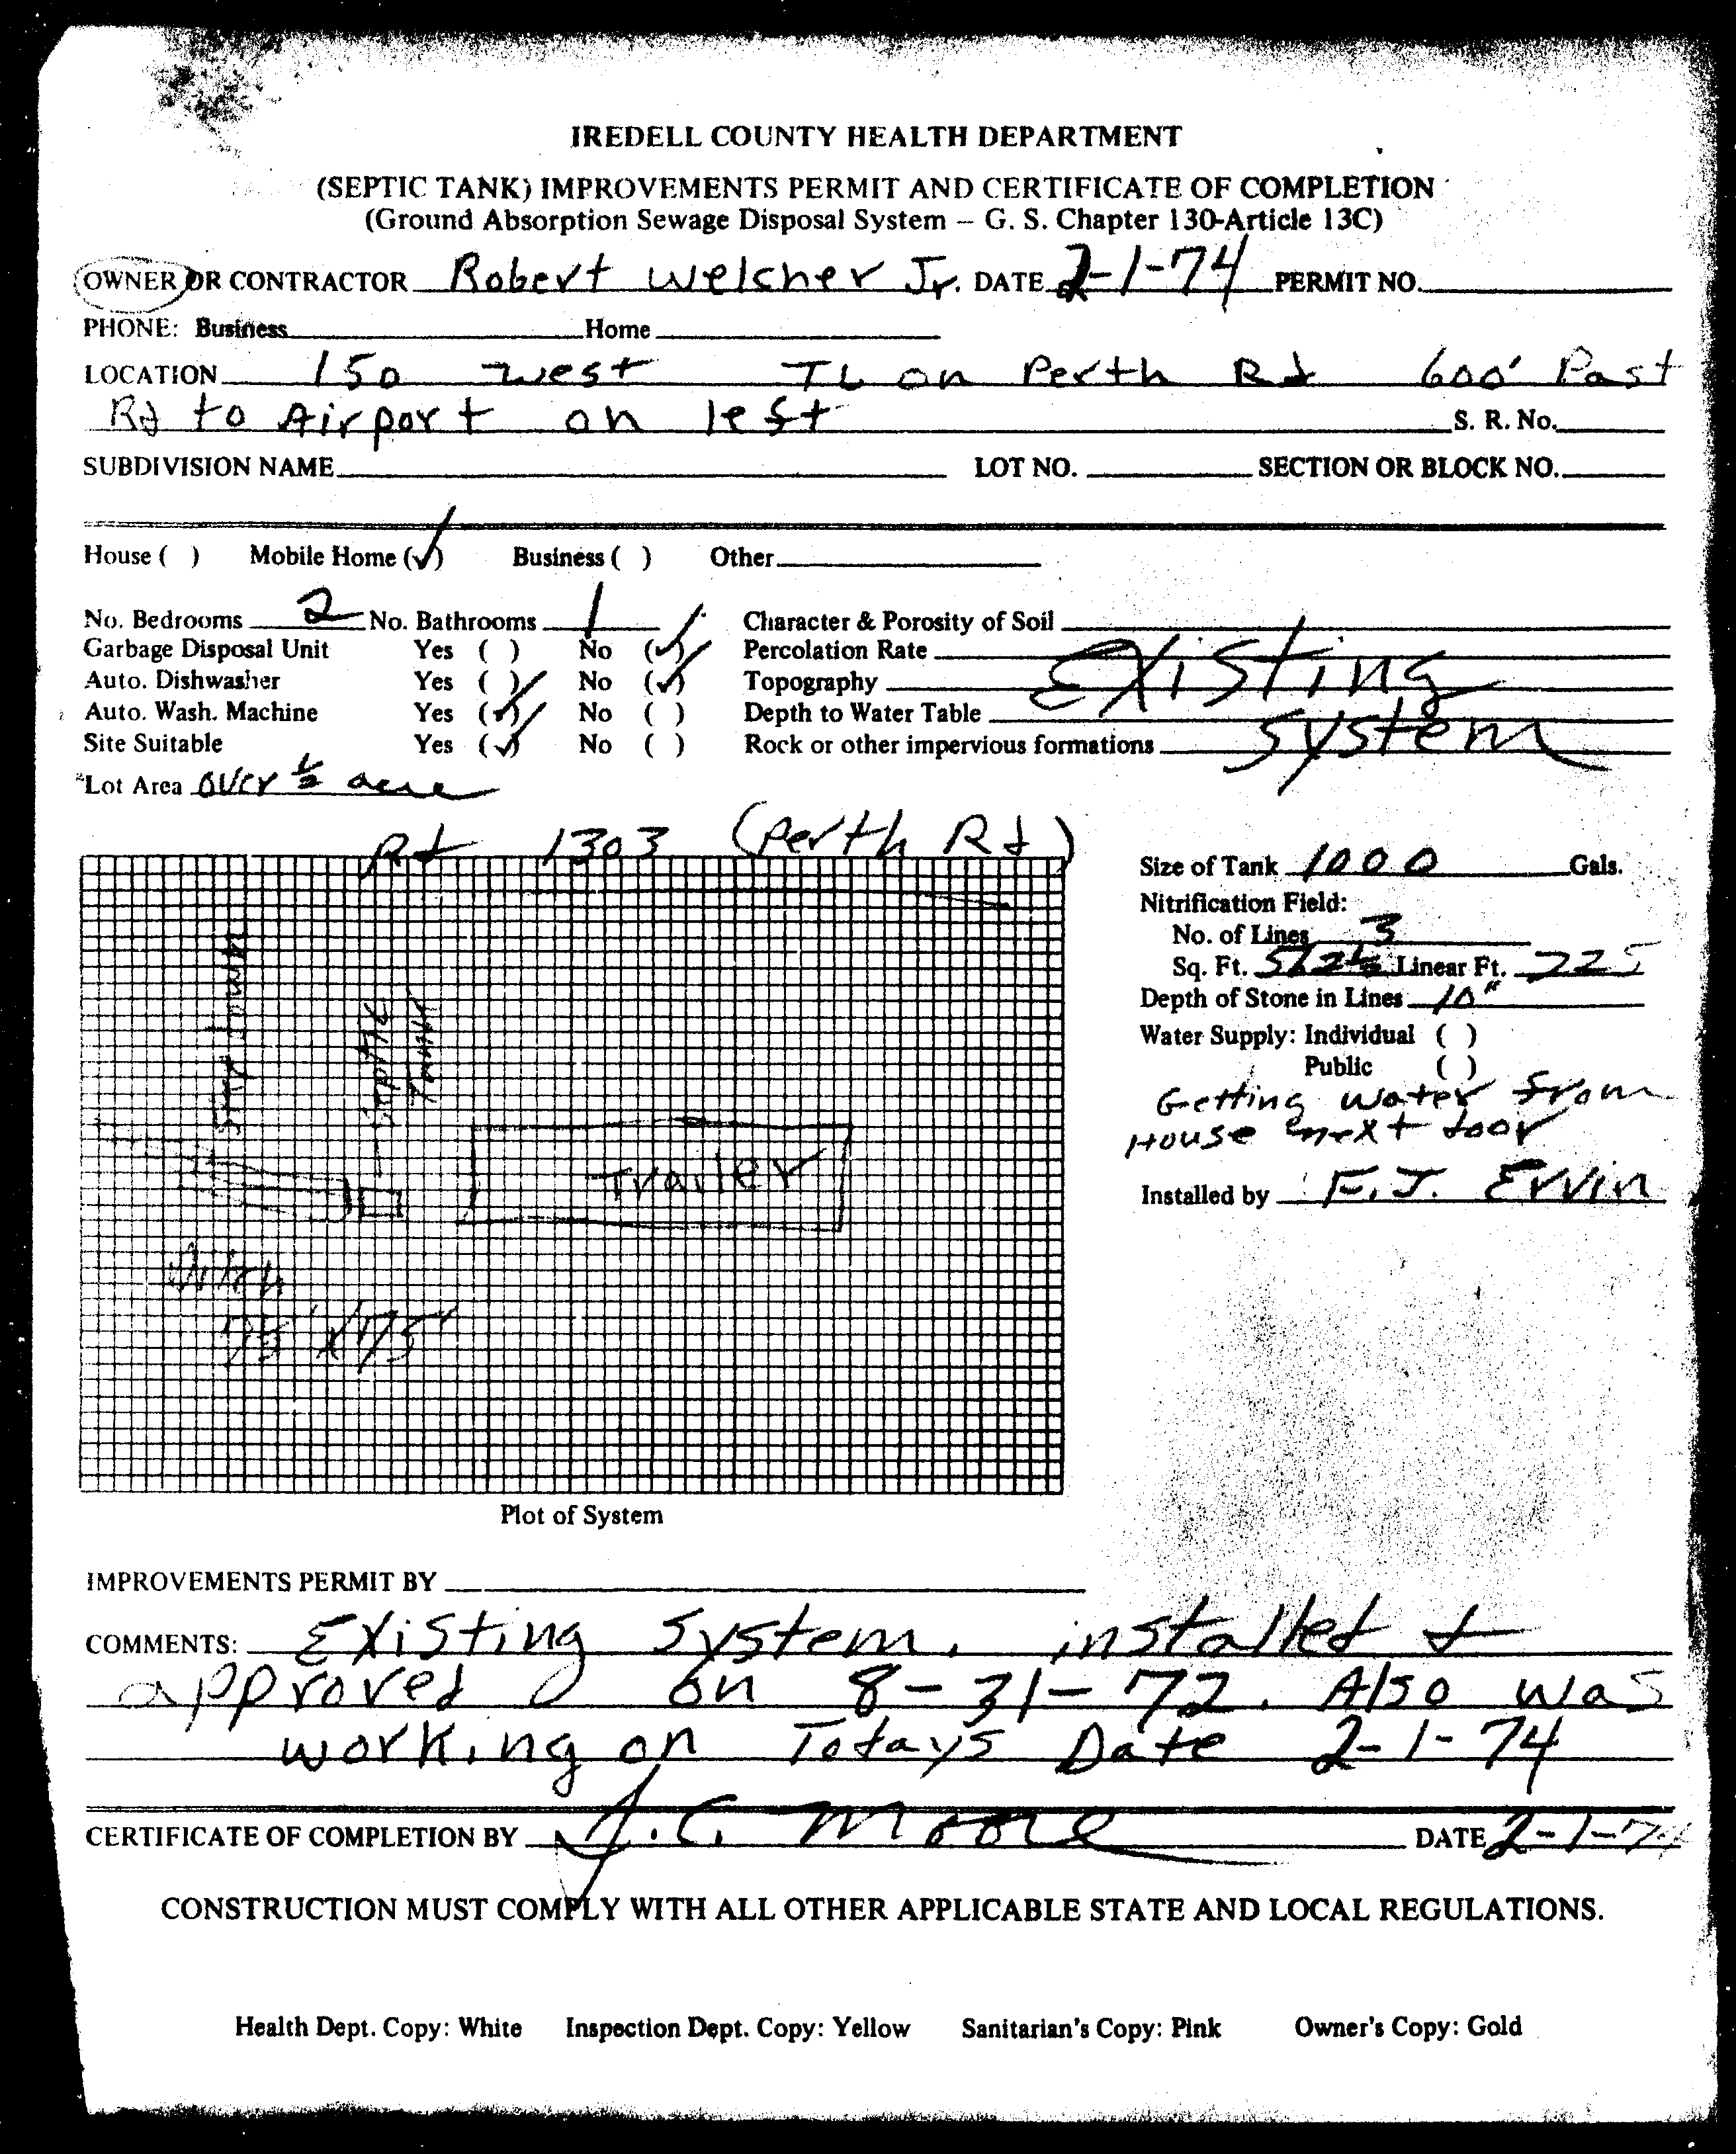 IREDELL COUNTY HEALTH DEPARTMENT
(SEPTIC TANK) IMPROVEMENTS PERMIT AND CERTIFICATE OF COMPLETION
(Ground Absorption Sewage Disposal System – G. S. Chapter 130-Article 13C)
OWNER OR CONTRACTOR Robert Welcher Jr. DATE 2-1-74 PERMIT NO.
PHONE: Business Home
LOCATION 150 West TL on Perth Rd 600' Past
Rd to Airport on left S. R. No.
SUBDIVISION NAME LOT NO. SECTION OR BLOCK NO.
House ( ) Mobile Home (✓) Business ( ) Other
No. Bedrooms 2 No. Bathrooms 1
Garbage Disposal Unit Yes ( ) No (✓)
Auto. Dishwasher Yes ( ) No (✓)
Auto. Wash. Machine Yes (✓) No ( )
Site Suitable Yes (✓) No ( )
Lot Area over ½ acre
Character & Porosity of Soil
Percolation Rate
Topography Existing
Depth to Water Table
Rock or other impervious formations system
Rd 1303 (Perth Rd)
septic
Tank
Trailer
75' x 75'
Plot of System
Size of Tank 1000 Gals.
Nitrification Field:
No. of Lines 3
Sq. Ft. 562½ Linear Ft. 225
Depth of Stone in Lines 10"
Water Supply: Individual ( )
Public ( )
Getting water from
House next door
Installed by F.J. Ervin
IMPROVEMENTS PERMIT BY
COMMENTS: Existing system, installed &
approved on 8-31-72. Also was
working on Todays Date 2-1-74
CERTIFICATE OF COMPLETION BY J.C. Moore DATE 2-1-74
CONSTRUCTION MUST COMPLY WITH ALL OTHER APPLICABLE STATE AND LOCAL REGULATIONS.
Health Dept. Copy: White Inspection Dept. Copy: Yellow Sanitarian's Copy: Pink Owner's Copy: Gold